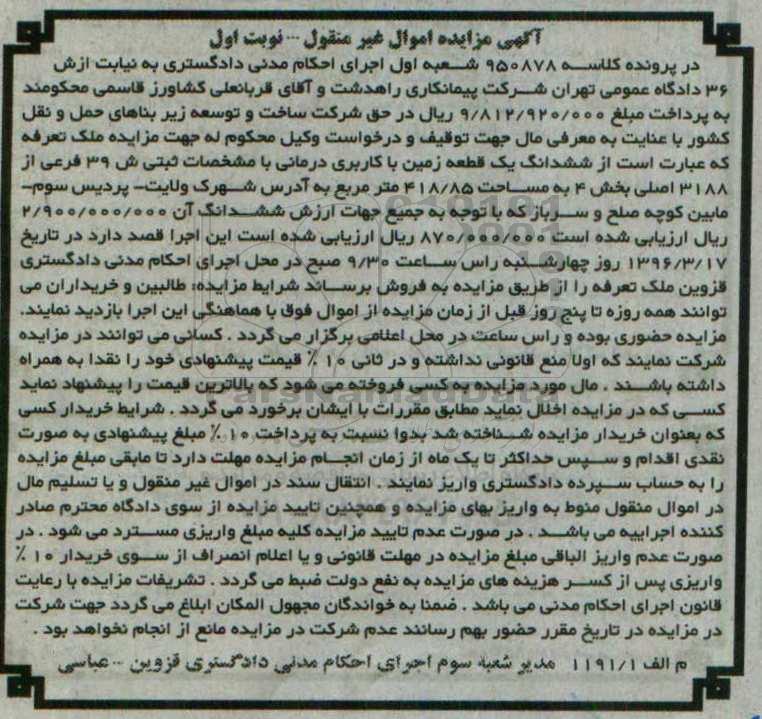 آگهی مزایده اموال غیر منقول -- نوبت اول
در پرونده کلاسه ۹۵۰۸۷۸ شعبه اول اجرای احکام مدنی دادگستری به نیابت ازش
۳۶ دادگاه عمومی تهران شرکت پیمانکاری راهدشت و آقای قربانعلی کشاورز قاسمی محکومند
به پرداخت مبلغ ۹/۸۱۲/۹۲۰/۰۰۰ ریال در حق شرکت ساخت و توسعه زیر بناهای حمل و نقل
کشور با عنایت به معرفی مال جهت توقیف و درخواست وکیل محکوم له جهت مزایده ملک تعرفه
که عبارت است از ششدانگ یک قطعه زمین با کاربری درمانی با مشخصات ثبتی ش ۳۹ فرعی از
۳۱۸۸ اصلی بخش ۴ به مساحت ۴۱۸/۸۵ متر مربع به آدرس شهرک ولایت- پردیس سوم-
مابین کوچه صلح و سرباز که با توجه به جمیع جهات ارزش ششدانگ آن ۲/۹۰۰/۰۰۰/۰۰۰
ریال ارزیابی شده است ۸۷۰/۰۰۰/۰۰۰ ریال ارزیابی شده است این اجرا قصد دارد در تاریخ
۱۳۹۶/۳/۱۷ روز چهارشنبه راس ساعت ۹/۳۰ صبح در محل اجرای احکام مدنی دادگستری
قزوین ملک تعرفه را از طریق مزایده به فروش برساند شرایط مزایده: طالبین و خریداران می
توانند همه روزه تا پنج روز قبل از زمان مزایده از اموال فوق با هماهنگی این اجرا بازدید نمایند.
مزایده حضوری بوده و راس ساعت در محل اعلامی برگزار می گردد . کسانی می توانند در مزایده
شرکت نمایند که اولا منع قانونی نداشته و در ثانی ۱۰ ٪ قیمت پیشنهادی خود را نقدا به همراه
داشته باشند . مال مورد مزایده به کسی فروخته می شود که بالاترین قیمت را پیشنهاد نماید
کسی که در مزایده اخلال نماید مطابق مقررات با ایشان برخورد می گردد . شرایط خریدار کسی
که بعنوان خریدار مزایده شناخته شد بدوا نسبت به پرداخت ۱۰ ٪ مبلغ پیشنهادی به صورت
نقدی اقدام و سپس حداکثر تا یک ماه از زمان انجام مزایده مهلت دارد تا مابقی مبلغ مزایده
را به حساب سپرده دادگستری واریز نمایند . انتقال سند در اموال غیر منقول و یا تسلیم مال
در اموال منقول منوط به واریز بهای مزایده و همچنین تایید مزایده از سوی دادگاه محترم صادر
کننده اجراییه می باشد . در صورت عدم تایید مزایده کلیه مبلغ واریزی مسترد می شود . در
صورت عدم واریز الباقی مبلغ مزایده در مهلت قانونی و یا اعلام انصراف از سوی خریدار ۱۰ ٪
واریزی پس از کسر هزینه های مزایده به نفع دولت ضبط می گردد . تشریفات مزایده با رعایت
قانون اجرای احکام مدنی می باشد . ضمنا به خواندگان مجهول المکان ابلاغ می گردد جهت شرکت
در مزایده در تاریخ مقرر حضور بهم رسانند عدم شرکت در مزایده مانع از انجام نخواهد بود .
م الف ۱۱۹۱/۱ مدیر شعبه سوم اجرای احکام مدنی دادگستری قزوین -- عباسی
ParsNamadData